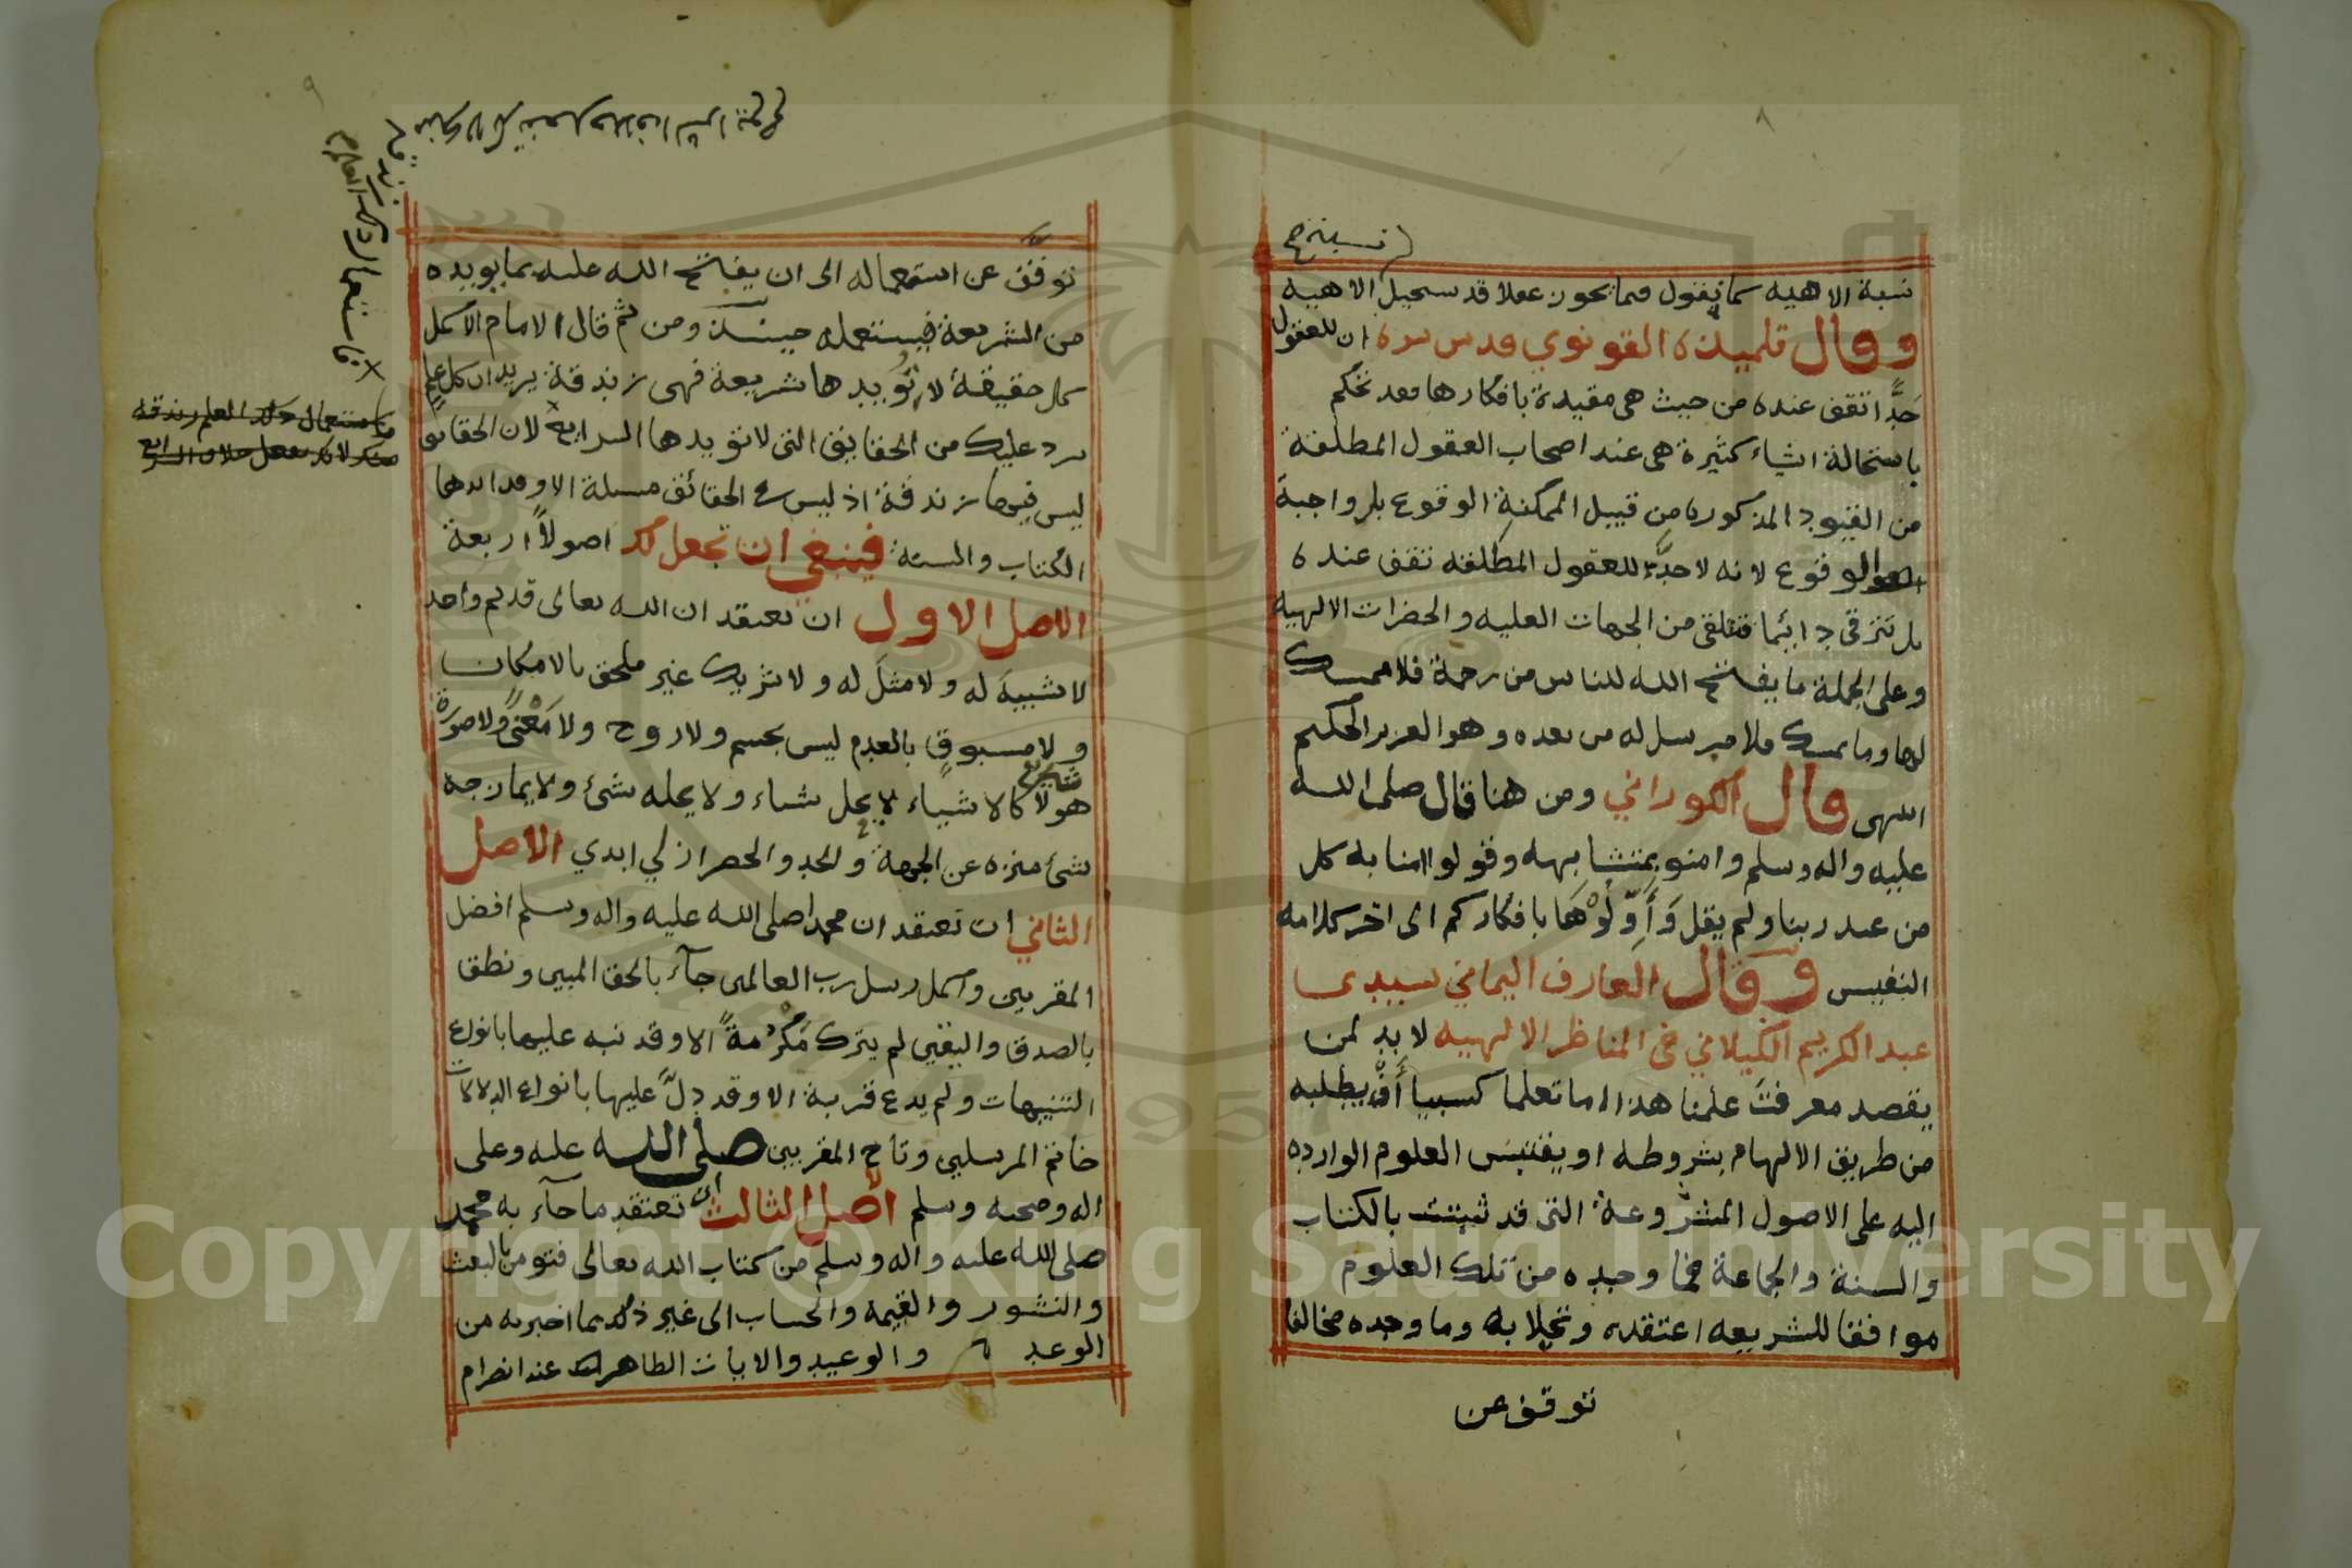 ٨
نسبة الاهيه كما نقول فيما يجوز عقلا قد يستحيل الاهيه
وقال تلميذه القونوي قدس سره ان للعقول
حدّا تقف عنده من حيث هى مقيدة بافكارها فقد تحكم
باستحالة اشياء كثيرة هى عند اصحاب العقول المطلقة
من القيود المذكوره من قبيل الممكنة الوقوع بل واجبة
الوقوع لانه لا حدّ للعقول المطلقه تقف عنده
بل تترقى دائما فتتلقى من الجهات العليه والحضرات الالهيه
وعلى الجملة ما يفتح الله للناس من رحمة فلا ممسك
لها وما يمسك فلا مرسل له من بعده وهو العزيز الحكيم
انتهى قال الكوراني ومن هنا قال صلى الله
عليه واله وسلم وامنو بمتشابهه وقولوا امنا به كل
من عند ربنا ولم يقل وَأَوِّلُوْهَا بافكاركم الى اخر كلامه
النفيس وقال العارف اليماني سيدى
عبد الكريم الكيلاني فى المناظر الالهيه لا بد لمن
يقصد معرفت علمنا هذا اما تعلما كسبيا أَوْ يطلبه
من طريق الالهام بشروطه او يقتبس العلوم الوارده
اليه على الاصول المشروعة التى قد ثبتت بالكتاب
والسنة والجماعة فما وجده من تلك العلوم
موافقا للشريعه اعتقده وتحلا به وما وجده مخالفا
توقف عن
٩
توقف عن استعماله الى ان يفتح الله عليه بما يويده
من الشريعة فيستعمله حينئذ ومن ثم قال الامام الاكمل
كل حقيقة لا تؤيدها شريعة فهى زندقة يريد ان كل علم
يرد عليك من الحقايق التى لا تويدها الشرايع لان الحقايق
ليس فيها زندقة اذ ليس في الحقائق مسئلة الا وقد ايدها
الكتاب والسنة فينبغى ان تجعل لك اصولاً اربعة
الاصل الاول ان تعتقد ان الله تعالى قديم واحد
لا شبيهَ له ولا مثلَ له ولا شريك غير ملحق بالامكان
ولا مسبوق بالعدم ليس بجسم ولا روح ولا مَعْنىً ولا صورة
هو لا كالاشياء لا يحل شياء ولا يحله شئ ولا يمازجه
شئ منزه عن الجهة والحد والحصر ازلي ابدي الاصل
الثاني ان تعتقد ان محمدا صلى الله عليه واله وسلم افضل
المقربين واكمل رسل رب العالمين جآء بالحق المبين ونطق
بالصدق واليقين لم يترك مَكْرُمةً الا وقد نبه عليها بانواع
التنبيهات ولم يدع قربة الا وقد دلَّ عليها بانواع الدلالات
خاتم المرسلين وتاج المقربين صلى الله عليه وعلى
اله وصحبه وسلم الأصل الثالث ان تعتقد ما جآء به محمد
صلى الله عليه واله وسلم من كتاب الله تعالى فتومن بالبعث
والنشور والقيمة والحساب الى غير ذلك مما اخبر به من
الوعد والوعيد والايات الظاهرات عند انصرام
فاستعمال ذلك العلم
زندقة
فاستعمال ذلك العلم زندقه
منك لانك تفعل خلاف الشرايع